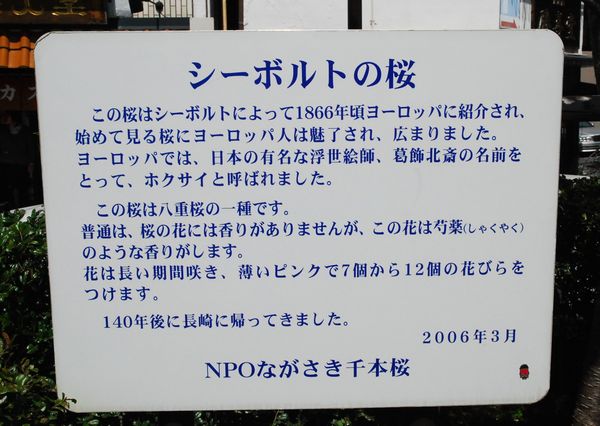 シーボルトの桜
この桜はシーボルトによって1866年頃ヨーロッパに紹介され、
始めて見る桜にヨーロッパ人は魅了され、広まりました。
ヨーロッパでは、日本の有名な浮世絵師、葛飾北斎の名前を
とって、ホクサイと呼ばれました。
この桜は八重桜の一種です。
普通は、桜の花には香りがありませんが、この花は芍薬(しゃくやく)
のような香りがします。
花は長い期間咲き、薄いピンクで7個から12個の花びらを
つけます。
140年後に長崎に帰ってきました。
2006年3月
NPOながさき千本桜